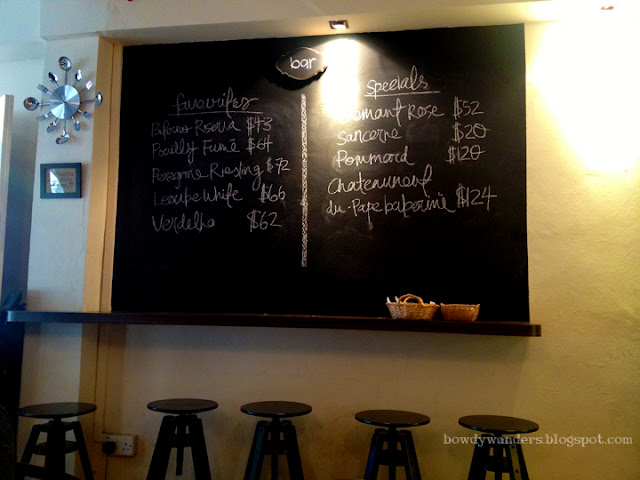 bar
favourites
Riserva $43
Pouilly Fumé $64
Peregrine Riesling $72
White $66
Verdelho $62
Specials
Cremant Rose $52
Sancerre $20
Pommard $120
Chateauneuf
du-Pape $124
bowdywanders.blogspot.com